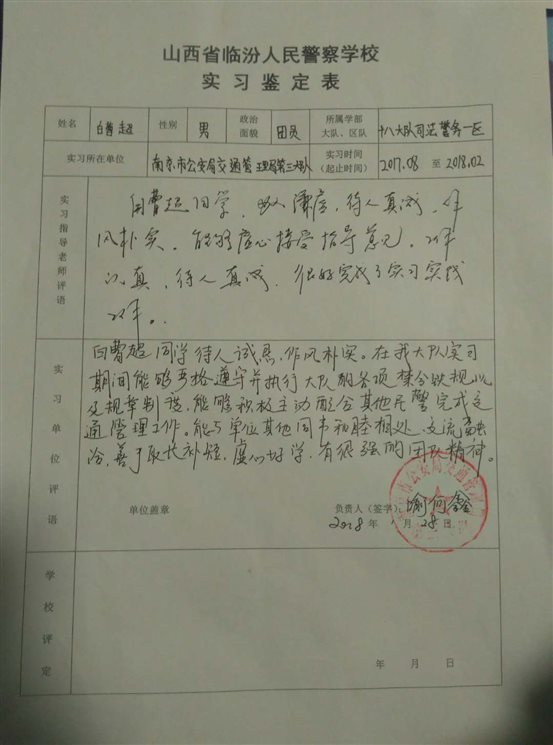 山西省临汾人民警察学校
实习鉴定表
姓名 白曹超 性别 男 政治面貌 团员 所属学部大队、区队 十八大队司法警务一区
实习所在单位 南京市公安局交通管理局第三大队 实习时间（起止时间） 2017.08 至 2018.02
实习指导老师评语
白曹超同学，为人谦虚，待人真诚，作
风朴实，能够虚心接受指导意见，工作
认真，待人真诚，很好完成了实习实践
工作。
实习单位评语
白曹超同学待人诚恳，作风朴实。在我大队实习
期间能够严格遵守并执行大队的各项禁令铁规以
及规章制度，能够积极主动配合其他民警完成交
通管理工作。能与单位其他同事和睦相处，交流融
洽，善于取长补短，虚心好学，有很强的团队精神。
单位盖章 负责人（签字）：
2018 年 月 28 日
学校评定
年 月 日